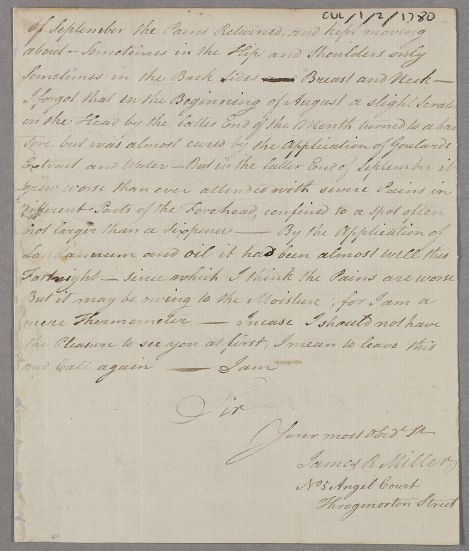 CUL/1/2/1780
of September the Pains Returned, and kept moving
about – Sometimes in the Hip and Shoulders only
Sometimes in the Back Sides Breast and Neck –
I forgot that in the Beginning of August a slight Scratch
in the Head by the latter End of the Month turned to a bad
Sore, but was almost cured by the Application of Goulards
Extract and Water – But in the latter End of September it
grew worse than ever attended with Severe Pains in
different Parts of the Forehead, confined to a Spot often
not larger than a Sixpence — By the Application of
Laudanum and oil it had been almost well this
Fortnight – since which I think the Pains are worse
But it may be owing to the Moisture; for I am a
mere Thermometer — Incase I should not have
the Pleasure to see you at first, I mean to leave this
and Call again — I am
Sir
Your most Obed. St
James R Miller
No 5 Angel Court
Throgmorton Street